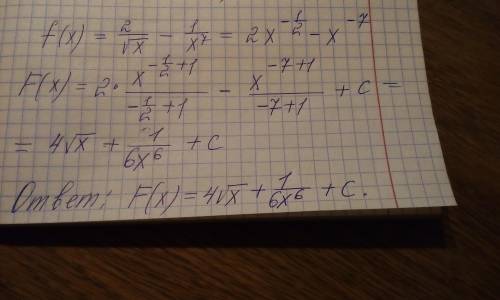 f(x) = 2/√x - 1/x⁷ = 2x^(-1/2) - x^(-7)
F(x) = 2 · x^(-1/2+1)/(-1/2+1) - x^(-7+1)/(-7+1) + C =
= 4√x + 1/(6x⁶) + C
Ответ: F(x) = 4√x + 1/(6x⁶) + C.